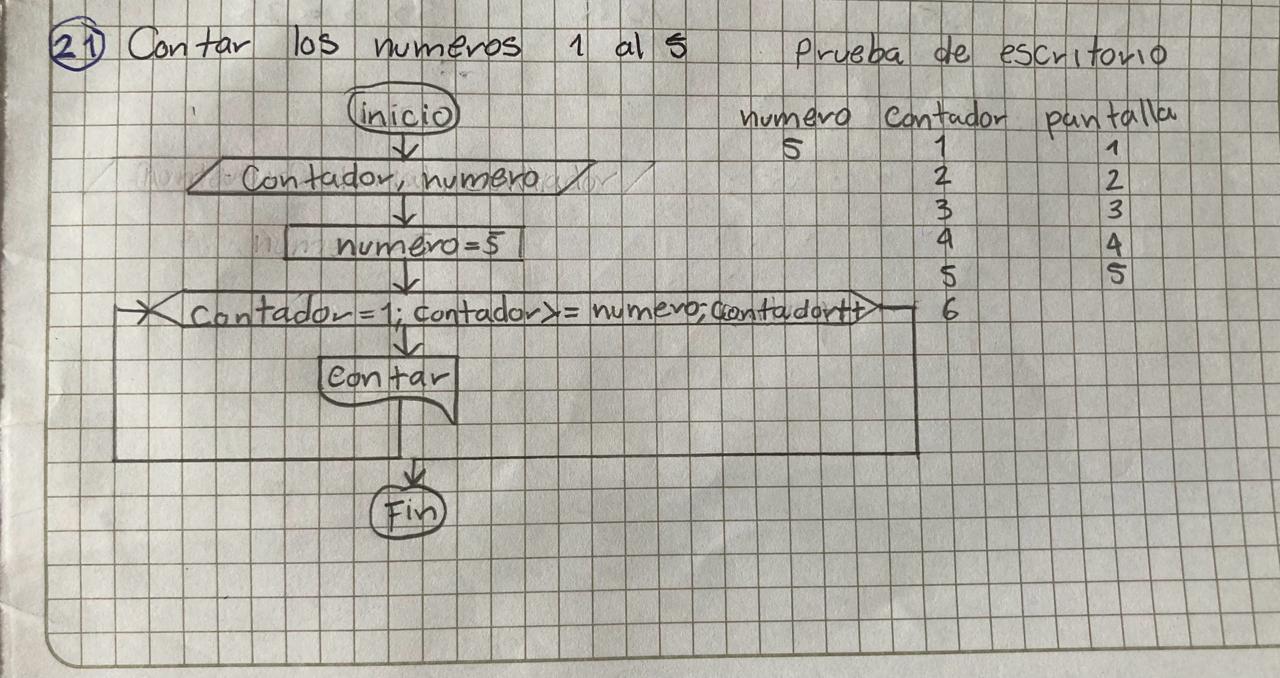 21 Contar los numeros 1 al 5
inicio
Contador, numero
numero=5
contador=1; contador>= numero; contador++
contar
Fin
Prueba de escritorio
numero contador pantalla
5 1 1
2 2
3 3
4 4
5 5
6